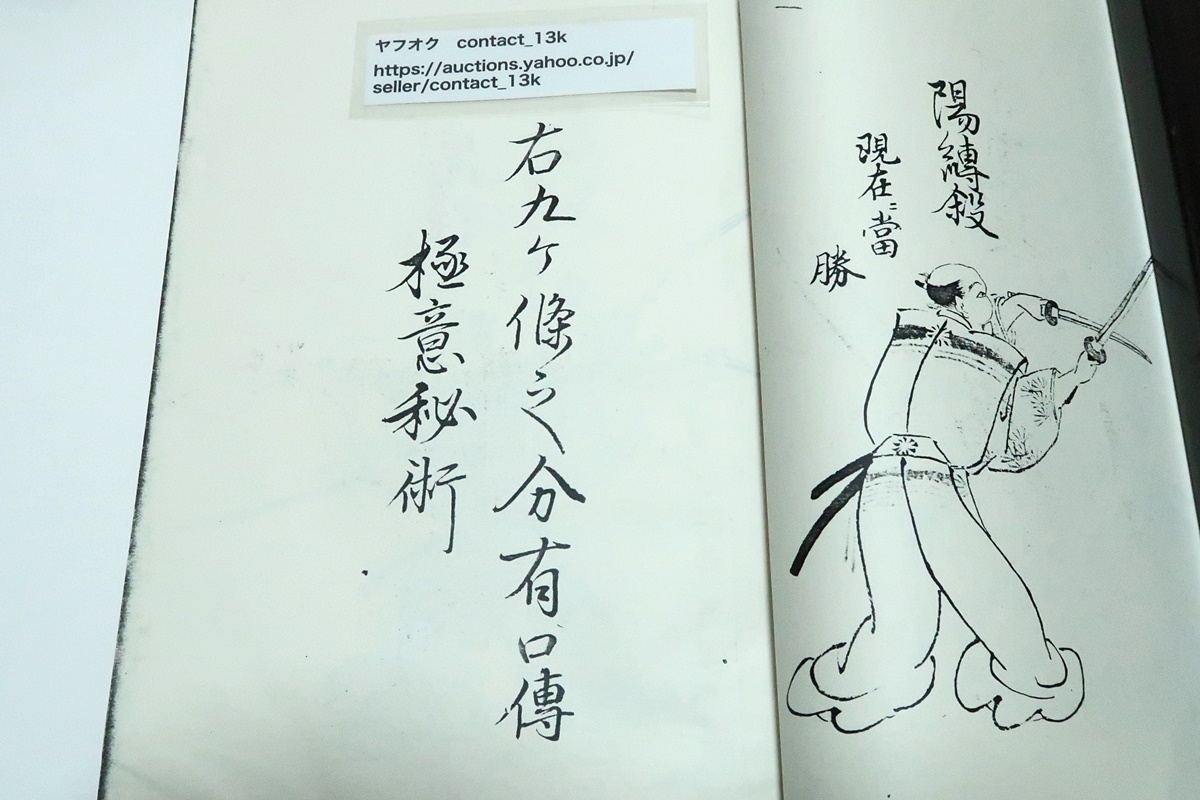 ヤフオク　contact_13k
https://auctions.yahoo.co.jp/
seller/contact_13k
現在ニ當
勝
右九ヶ條之分有口傳
極意秘術